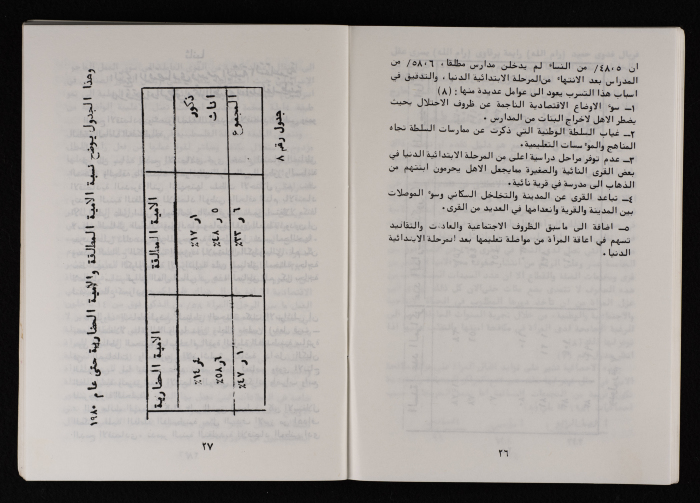 ان ٤٨٠٥/ من النساء لم يدخلن مدارس مطلقا، ٥٨٠٦/ من
المدراس بعد الانتهاء من المرحلة الابتدائية الدنيا ، والتدقيق في
اسباب هذا التسرب يعود الى عوامل عديدة منها : (٨)
١ــ سوء الاوضاع الاقتصادية الناجمة عن ظروف الاحتلال بحيث
يضطر الاهل لاخراج البنات من المدارس .
٢ــ غياب السلطة الوطنية التي ذكرت عن ممارسات السلطة تجاه
المناهج والموءسسات التعليمية .
٣ــ عدم توفر مراحل دراسية اعلى من المرحلة الابتدائية الدنيا في
بعض القرى النائية والصغيرة ممايجعل الاهل يحرمون ابنتهم من
الذهاب الى مدرسة في قرية نائية .
٤ــ تباعد القرى عن المدينة والتخلخل السكاني وسوء الموصلات
بين المدينة والقرية وانعدامها في العديد من القرى .
٥ــ اضافة الى ماسبق الظروف الاجتماعية والعادات والتقاليد
تسهم في اعاقة المرأة من مواصلة تعليمها بعد المرحلة الابتدائية
الدنيا .
٢٦
جدول رقم ٨
الامية المطلقة الامية الحضارية
ذكور ١ر١٧٪ ٤ر١٤٪
اناث ٥ر٤٨٪ ٦ر٥٨٪
المجموع ٦ر٣٣٪ ١ر٤٧٪
وهذا الجدول يوضح نسبة الامية المطلقة والامية الحضارية حتى عام ١٩٨٠
٢٧